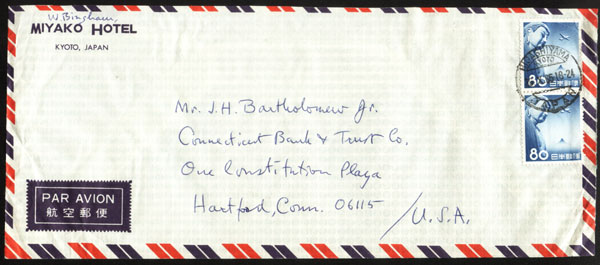 W. Bingham,
MIYAKO HOTEL
KYOTO, JAPAN
Mr. J.H. Bartholomew Jr.
Connecticut Bank & Trust Co.
One Constitution Plaza
Hartford, Conn. 06115 / U.S.A.
PAR AVION
航空郵便
HIGASHIYAMA
KYOTO
80
日本郵便
80
日本郵便